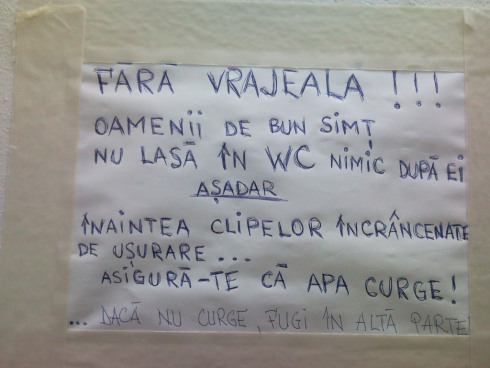 FĂRĂ VRĂJEALA !!!
OAMENII DE BUN SIMȚ
NU LASĂ ÎN WC NIMIC DUPĂ EI
AȘADAR
ÎNAINTEA CLIPELOR ÎNCRÂNCENATE
DE UȘURARE...
ASIGURĂ-TE CĂ APA CURGE!
... DACĂ NU CURGE, FUGI ÎN ALTĂ PARTE